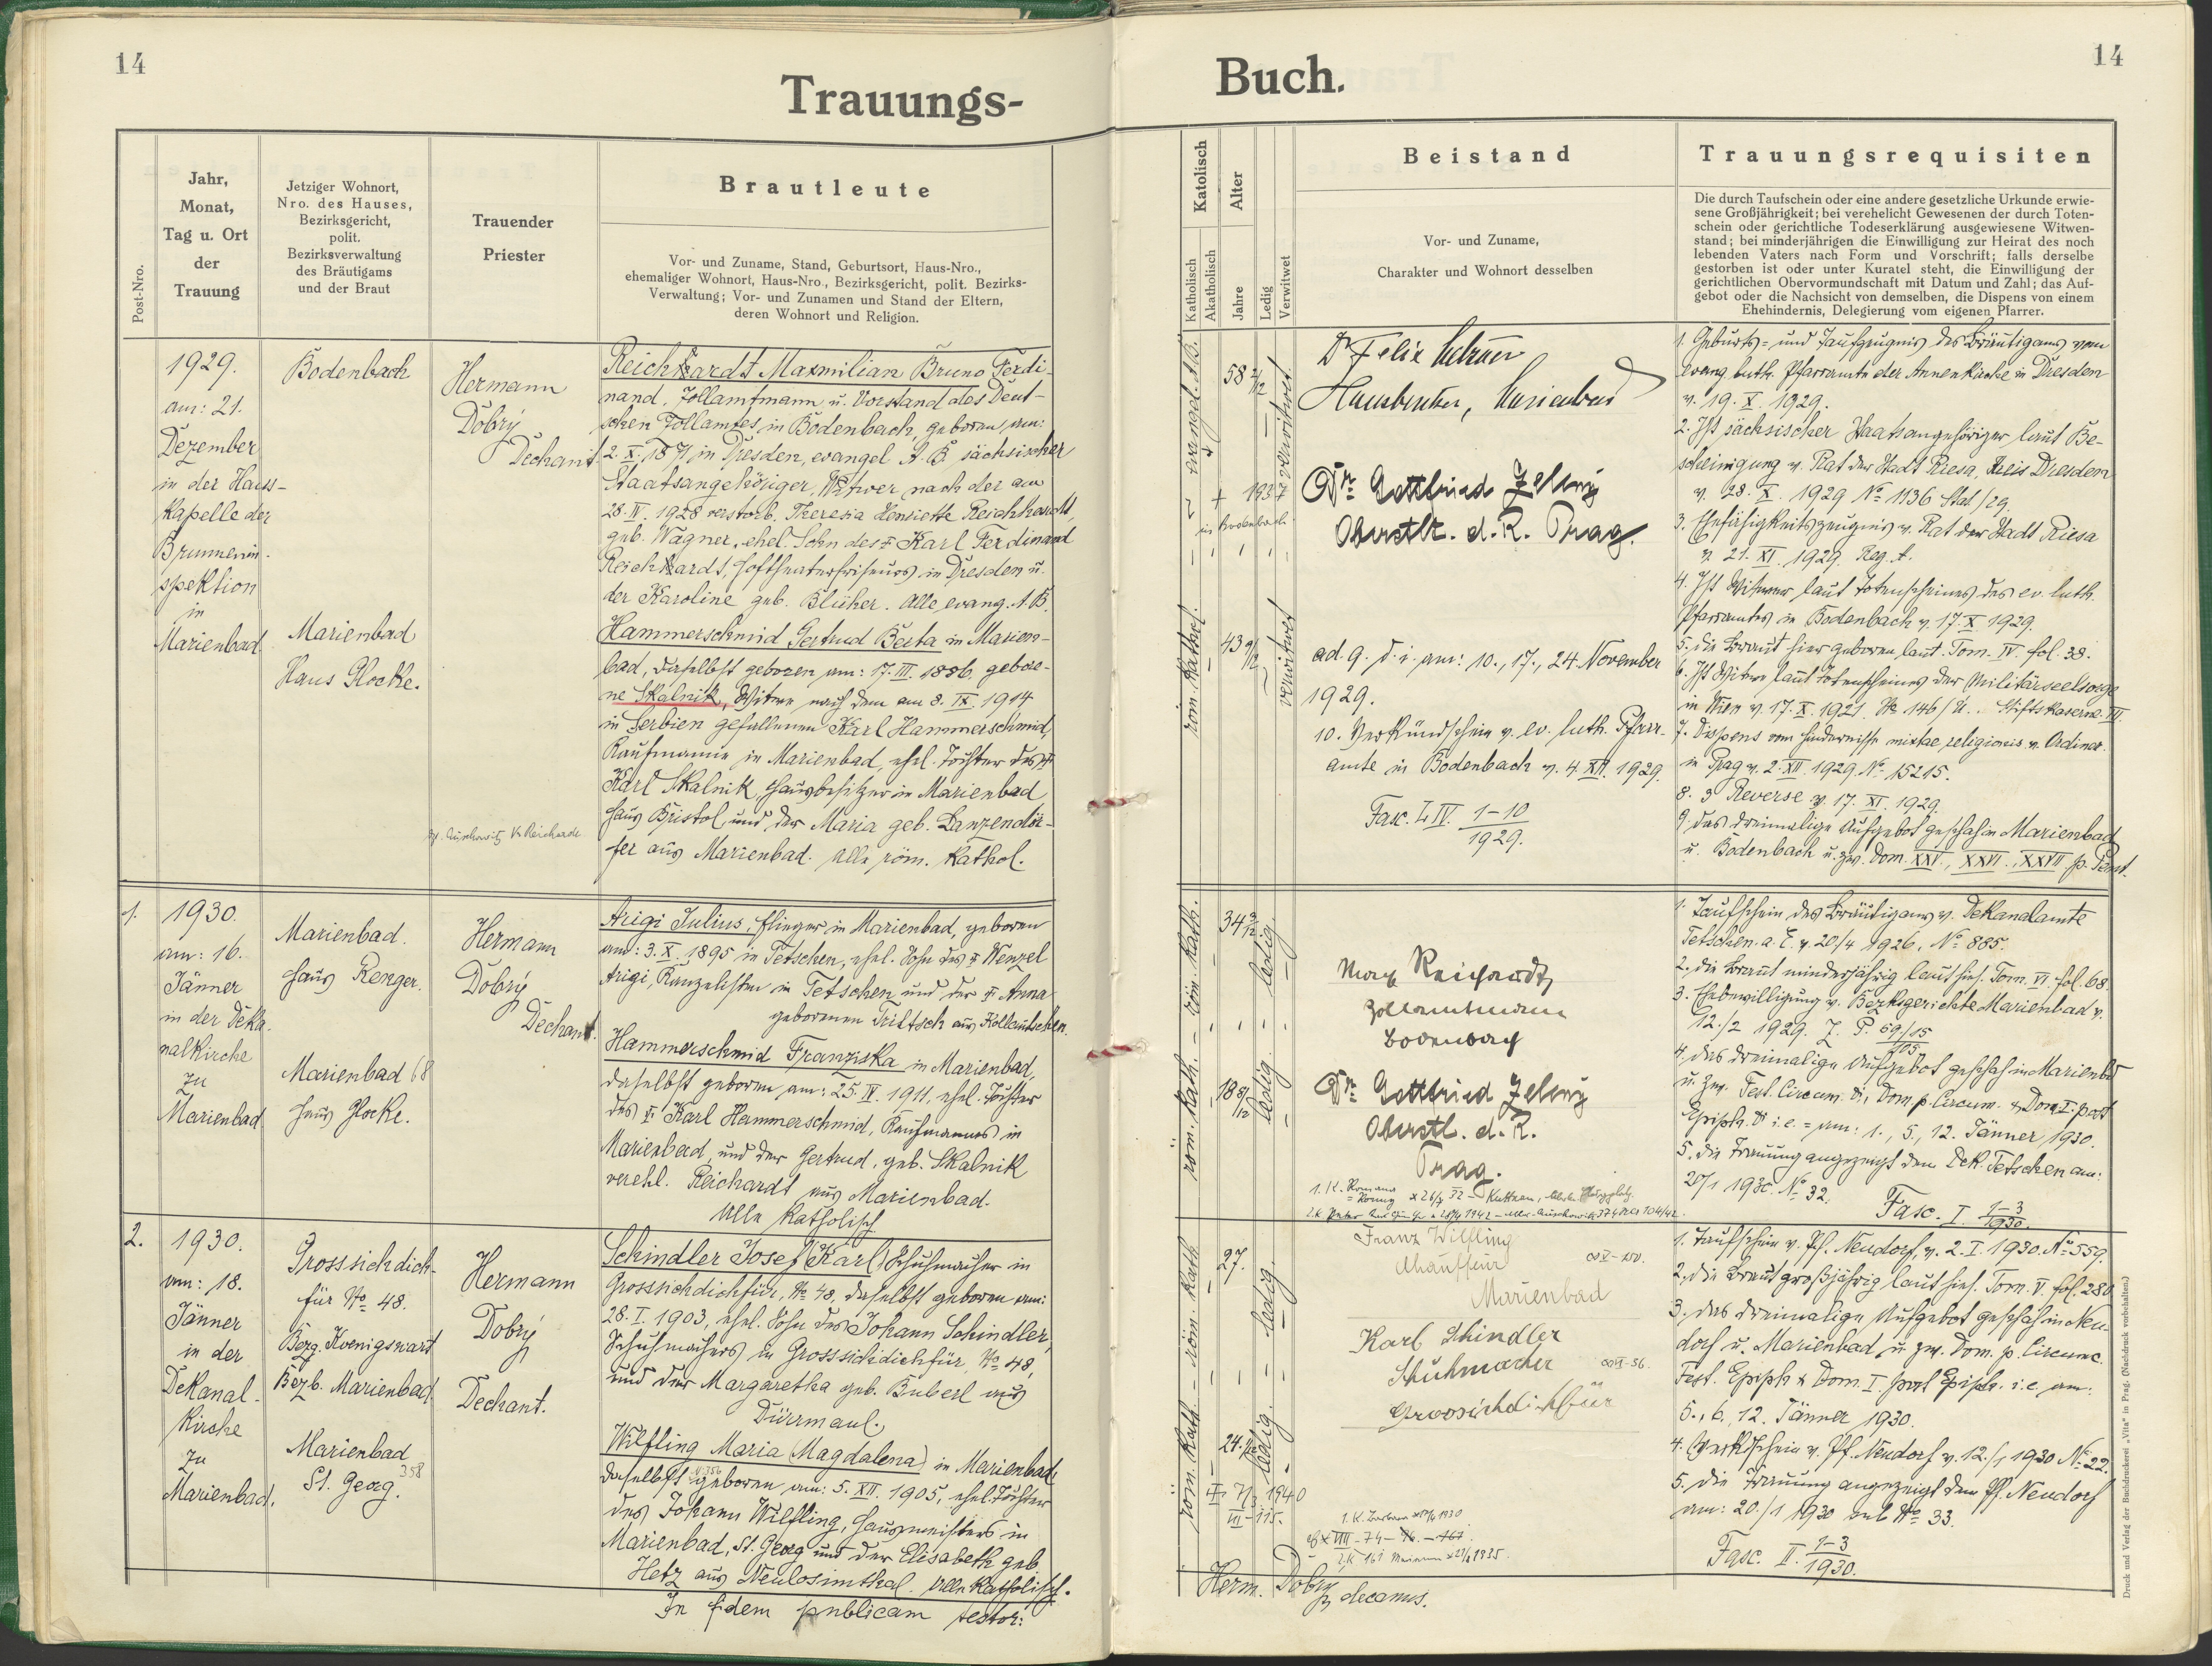 14
Trauungs-
Post-Nro.
Jahr,
Monat,
Tag u. Ort
der
Trauung
Jetziger Wohnort,
Nro. des Hauses,
Bezirksgericht,
polit.
Bezirksverwaltung
des Bräutigams
und der Braut
Trauender
Priester
Brautleute
Vor- und Zuname, Stand, Geburtsort, Haus-Nro.,
ehemaliger Wohnort, Haus-Nro., Bezirksgericht, polit. Bezirks-
Verwaltung; Vor- und Zunamen und Stand der Eltern,
deren Wohnort und Religion.
1929.
am: 21.
Dezember
in der Haus-
Kapelle der
Brunnenin-
spektion
in
Marienbad.
Bodenbach
Marienbad
Haus Glocke.
Hermann
Dobrý
Dechant
Reichardt Maxmilian Bruno Ferdi-
nand, Zollamtmann u. Vorstand des Deut-
schen Zollamtes in Bodenbach, geboren am:
2. X. 1871 in Dresden, evangel. A. B. sächsischer
Staatsangehöriger, Witwer nach der am
28. IV. 1928 verstorb. Theresia Henriette Reichardt,
geb. Wagner, ehel. Sohn des Karl Ferdinand
Reichardt, Hoftheaterfriseurs in Dresden u.
der Karoline geb. Blüher. Alle evang. A. B.
Hammerschmid Gertrud Berta in Marien-
bad, daselbst geboren am: 17. III. 1886. gebore-
ne Skalnik, Witwe nach dem am 8. IX. 1914
in Serbien gefallenen Karl Hammerschmid,
Kaufmanne in Marienbad, ehel. Tochter des
Karl Skalnik, Hausbesitzer in Marienbad
Haus Bristol, und der Maria geb. Danzendör-
fer aus Marienbad. Alle röm. Kathol.
1.
1930.
am: 16.
Jänner
in der Deka-
nalkirche
zu
Marienbad
Marienbad.
Haus Renger.
Marienbad 68
Haus Glocke.
Hermann
Dobrý
Dechant.
Arigi Julius, Flieger in Marienbad, geboren
am: 3. X. 1895 in Tetschen, ehel. Sohn des Wenzel
Arigi, Kanzelisten in Tetschen und der Anna
geborenen Triltsch aus Kollautschen.
Hammerschmid Franziska in Marienbad,
daselbst geboren am: 25. IV. 1911, ehel. Tochter
des Karl Hammerschmid, Kaufmannes in
Marienbad, und der Gertrud, geb. Skalnik
verehl. Reichardt aus Marienbad.
Alle Katholisch
2.
1930.
am: 18.
Jänner
in der
Dekanal-
Kirche
zu
Marienbad.
Grosssichdich-
für No 48.
Bezg. Koenigswart
Bezb. Marienbad
Marienbad
St. Georg. 358
Hermann
Dobrý
Dechant.
Schindler Josef (Karl) Schuhmacher in
Grosssichdichfür, No 48, daselbst geboren am:
28. I. 1903, ehel. Sohn des Johann Schindler,
Schuhmachers in Grosssichdichfür No 48,
und der Margaretha geb. Buberl aus
Dürrmaul.
Wilfling Maria (Magdalena) in Marienbad,
daselbst geboren am: 5. XII. 1905, ehel. Tochter
des Johann Wilfling, Hausmeisters in
Marienbad, St. Georg und der Elisabeth geb.
Hetz aus Neulosimthal. Alle Katholisch.
In fidem publicam testor:
14
Buch.
Katolisch
Katholisch
Akatholisch
Alter
Jahre
Ledig
Verwitwet
Beistand
Vor- und Zuname,
Charakter und Wohnort desselben
Trauungsrequisiten
Die durch Taufschein oder eine andere gesetzliche Urkunde erwie-
sene Großjährigkeit; bei verehelicht Gewesenen der durch Toten-
schein oder gerichtliche Todeserklärung ausgewiesene Witwen-
stand; bei minderjährigen die Einwilligung zur Heirat des noch
lebenden Vaters nach Form und Vorschrift; falls derselbe
gestorben ist oder unter Kuratel steht, die Einwilligung der
gerichtlichen Obervormundschaft mit Datum und Zahl; das Auf-
gebot oder die Nachsicht von demselben, die Dispens von einem
Ehehindernis, Delegierung vom eigenen Pfarrer.
evangel. A. B.
58 2/12
verwitwet
+ 1937
in Bodenbach.
röm. Kathol.
43 9/12
verwitwet
Dr. Felix
Marienbad
Dr. Gottfried
Oberstlt. d. R. Prag.
ad 9. d. i. am: 10., 17., 24. November
1929.
10. Verkündschein v. ev. luth. Pfarr-
amte in Bodenbach v. 4. XII. 1929.
Fasc. LIV. 1-10
1929.
1. Geburts- und Taufzeugnis des Bräutigams vom
evang. luth. Pfarramte der Annenkirche in Dresden
v. 19. X. 1929.
2. Ist sächsischer Staatsangehöriger laut Be-
scheinigung v. Rat der Stadt Riesa, Kreis Dresden
v. 28. X. 1929 No 1136 Sta1/29.
3. Ehefähigkeitszeugnis v. Rat der Stadt Riesa
v. 21. XI. 1929. Reg. A.
4. Ist Witwer laut Totenscheines des ev. luth.
Pfarramtes in Bodenbach v. 17. X. 1929.
5. Die Braut hier geboren laut Tom. IV. fol. 38.
6. Ist Witwe laut Totenscheines der Militärseelsorge
in Wien v. 17. X. 1921. No 146/U. Stiftskaserne. VII
7. Dispens vom Hindernisse mixtae religionis v. Ordinar.
in Prag v. 2. XII. 1929. No 15215.
8. 3 Reverse v. 17. XI. 1929.
9. das dreimalige Aufgebot geschah in Marienbad
u. Bodenbach u. zw. Dom. XXV., XXVI., XXVII p. Pent.
röm. Kath. - röm. Kath.
34 3/12
ledig.
18 8/12
ledig
Max Reichardt
Zollamtmann
Bodenbach
Dr. Gottfried
Oberstl. d. R.
Prag.
1. Taufschein des Bräutigams v. Dekanalamte
Tetschen a. E. v. 20/4 1926, No 885.
2. die Braut minderjährig laut hies. Tom. VI. fol. 68
3. Ehebewilligung v. Bezksgerichte Marienbad v.
12./2 1929. Z. P. 69/15
105
4. das dreimalige Aufgebot geschah in Marienbad
u. zw. Fest. Circum. Di, Dom p. Circum. & Dom I. post
Epiph. i. e. = am: 1., 5., 12. Jänner 1930.
5. die Trauung angezeigt dem Dek. Tetschen am:
20/1 1930. No 32.
Fasc. I. 1-3
1930.
röm. Kath. - röm. Kath
27.
ledig.
24.
ledig.
Franz Wilfling
Chauffeur
Marienbad
Karl Schindler
Schuhmacher
Grossichdichfür
1. Taufschein v. Pf. Neudorf, v. 2. I. 1930. No 559.
2. die Braut großjährig laut hies. Tom. V. fol. 280
3. das dreimalige Aufgebot geschah in Neu-
dorf u. Marienbad u. zw. Dom. p. Circumc.
Fest. Epiph & Dom. I. post Epiph. i. e. am:
5., 6., 12. Jänner 1930.
4. Verkschein v. Pf. Neudorf v. 12./1 1930 No 22.
5. die Trauung angezeigt dem Pf. Neudorf
am: 20./1 1930 sub No 33.
Fasc. II. 1-3
1930.
Herm. Dobrý decanus.
Druck und Verlag der Buchdruckerei „Vita" in Prag. (Nachdruck vorbehalten.)